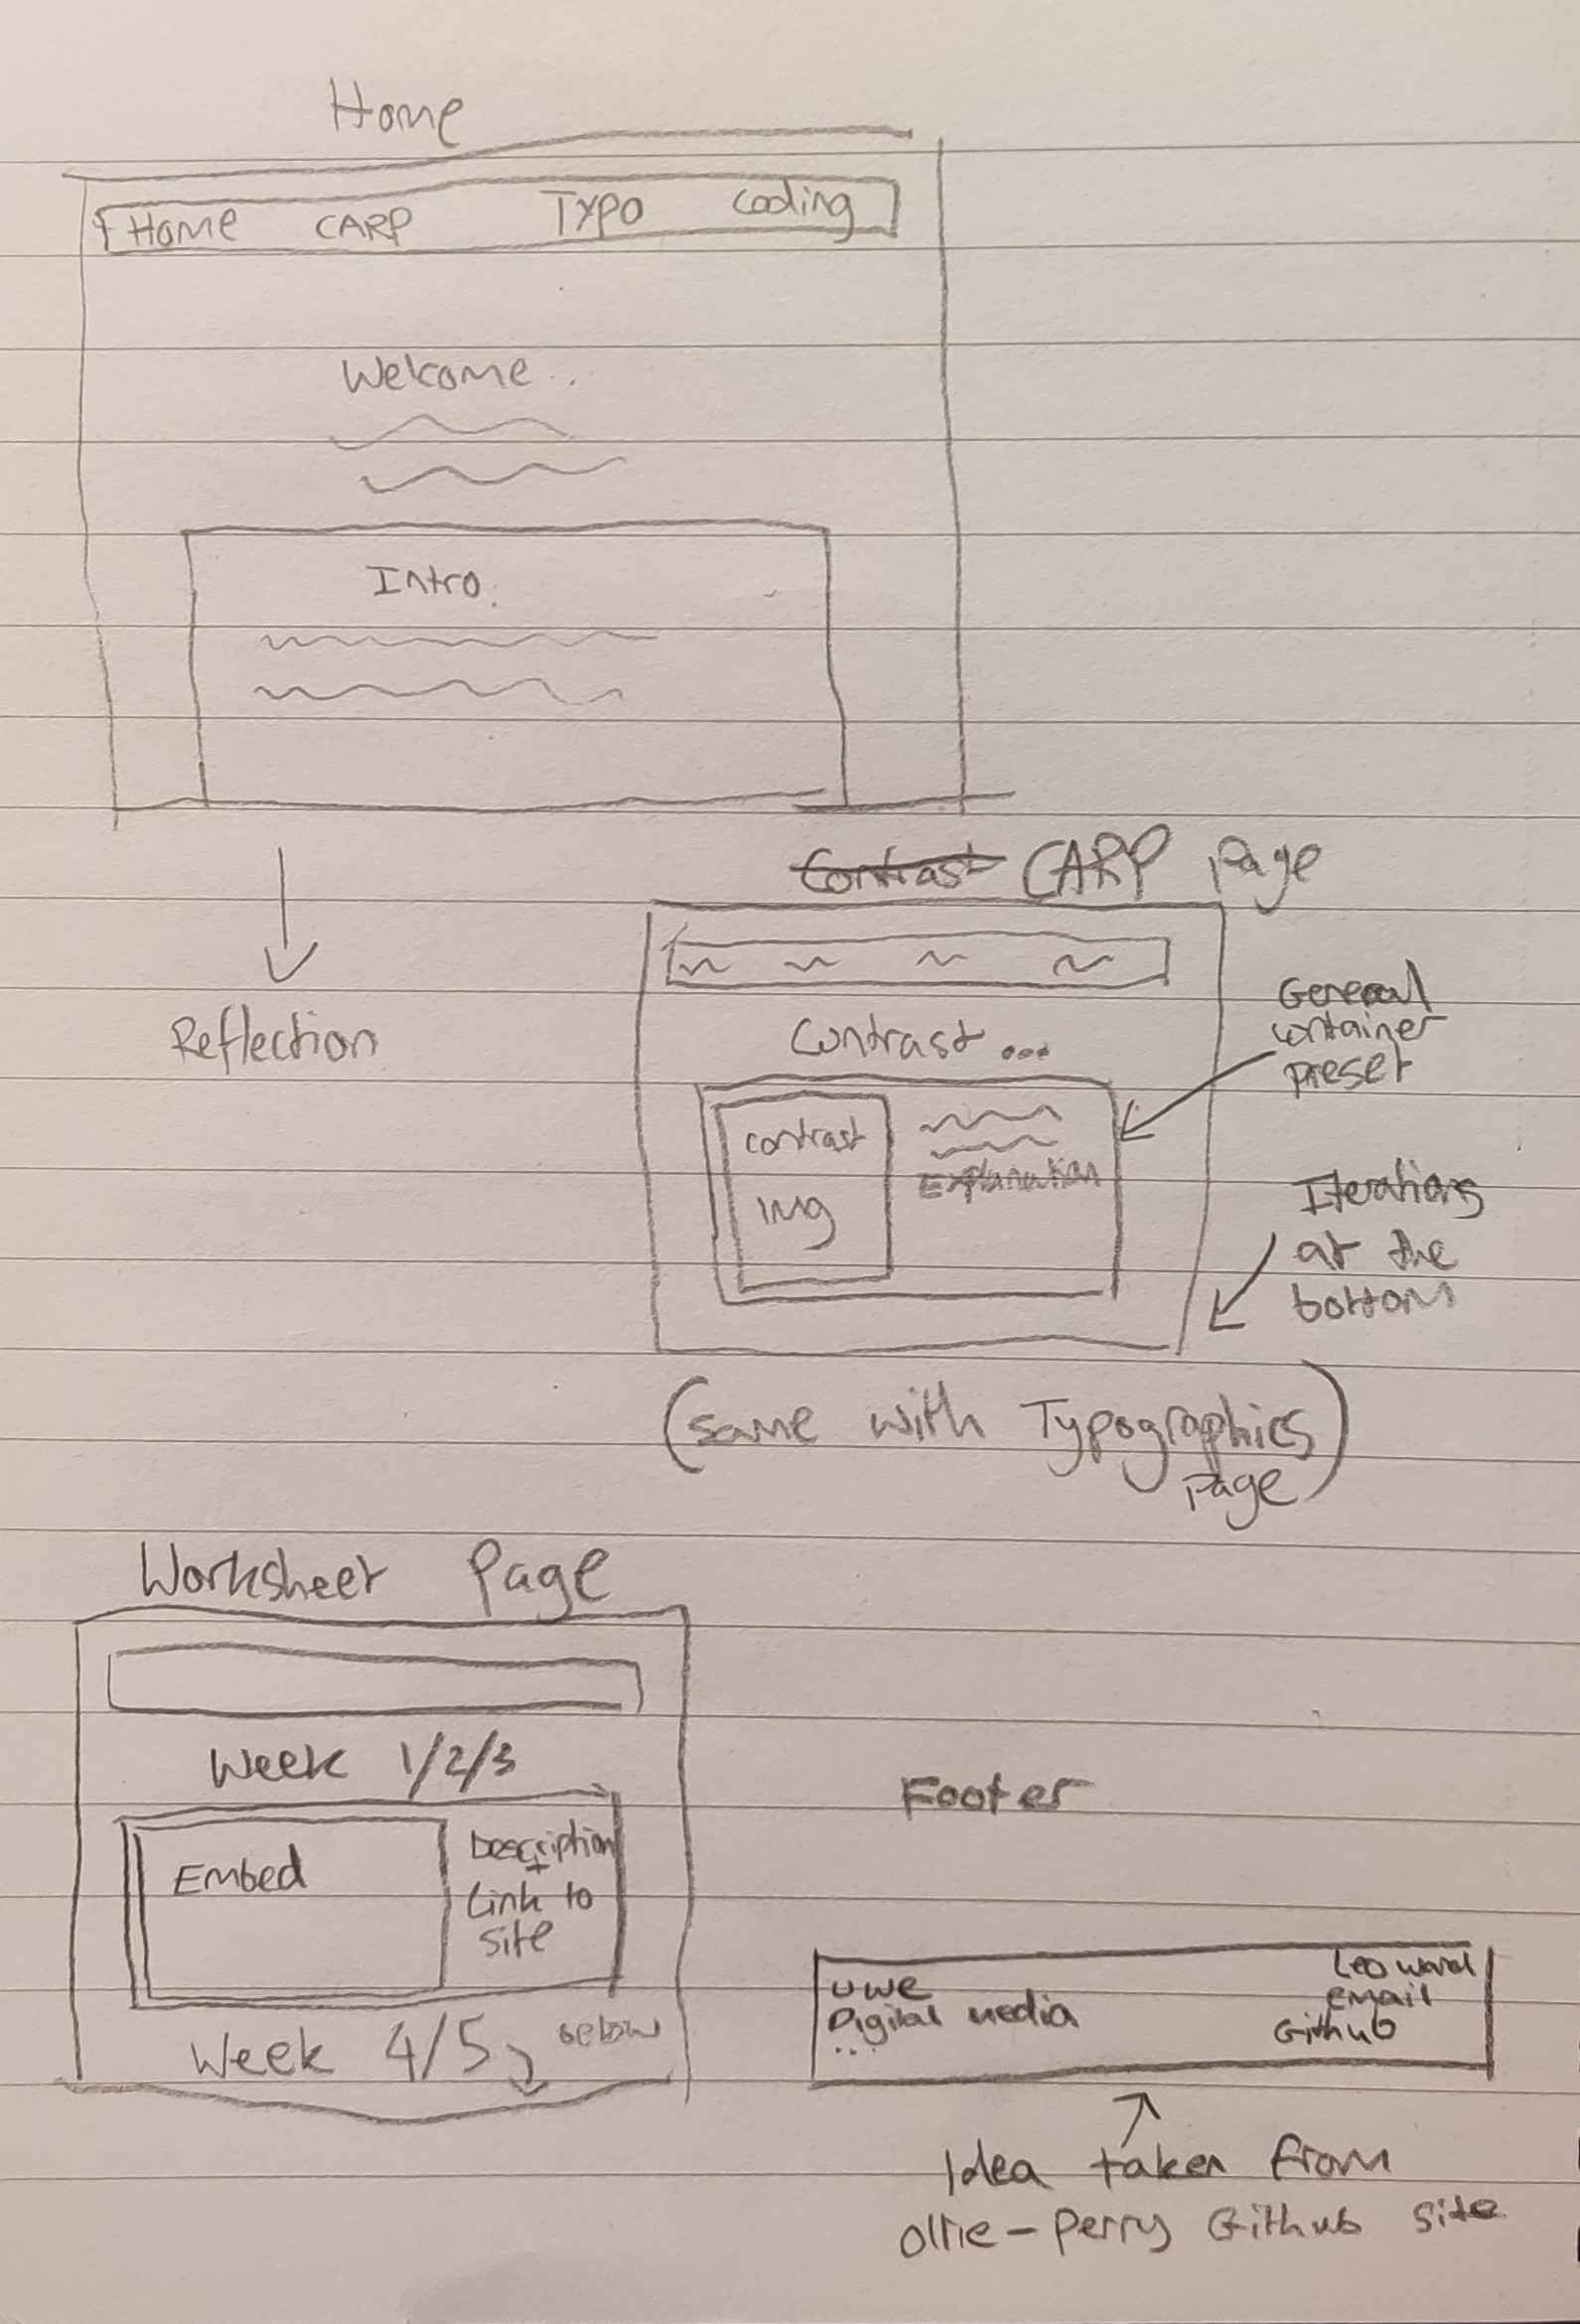 Home
Home CARP Typo Coding
Welcome..
Intro.
Reflection
Contrast CARP Page
Contrast ...
contrast
img
Explanation
General
container
preset
Iterations
at the
bottom
(same with Typographics
Page)
Worksheet Page
Week 1/2/3
Embed
Description
+
Link to
site
Week 4/5
below
Footer
UWE
Digital media
...
Leo Ward
email
Github
Idea taken from
Ollie-Perry Github site